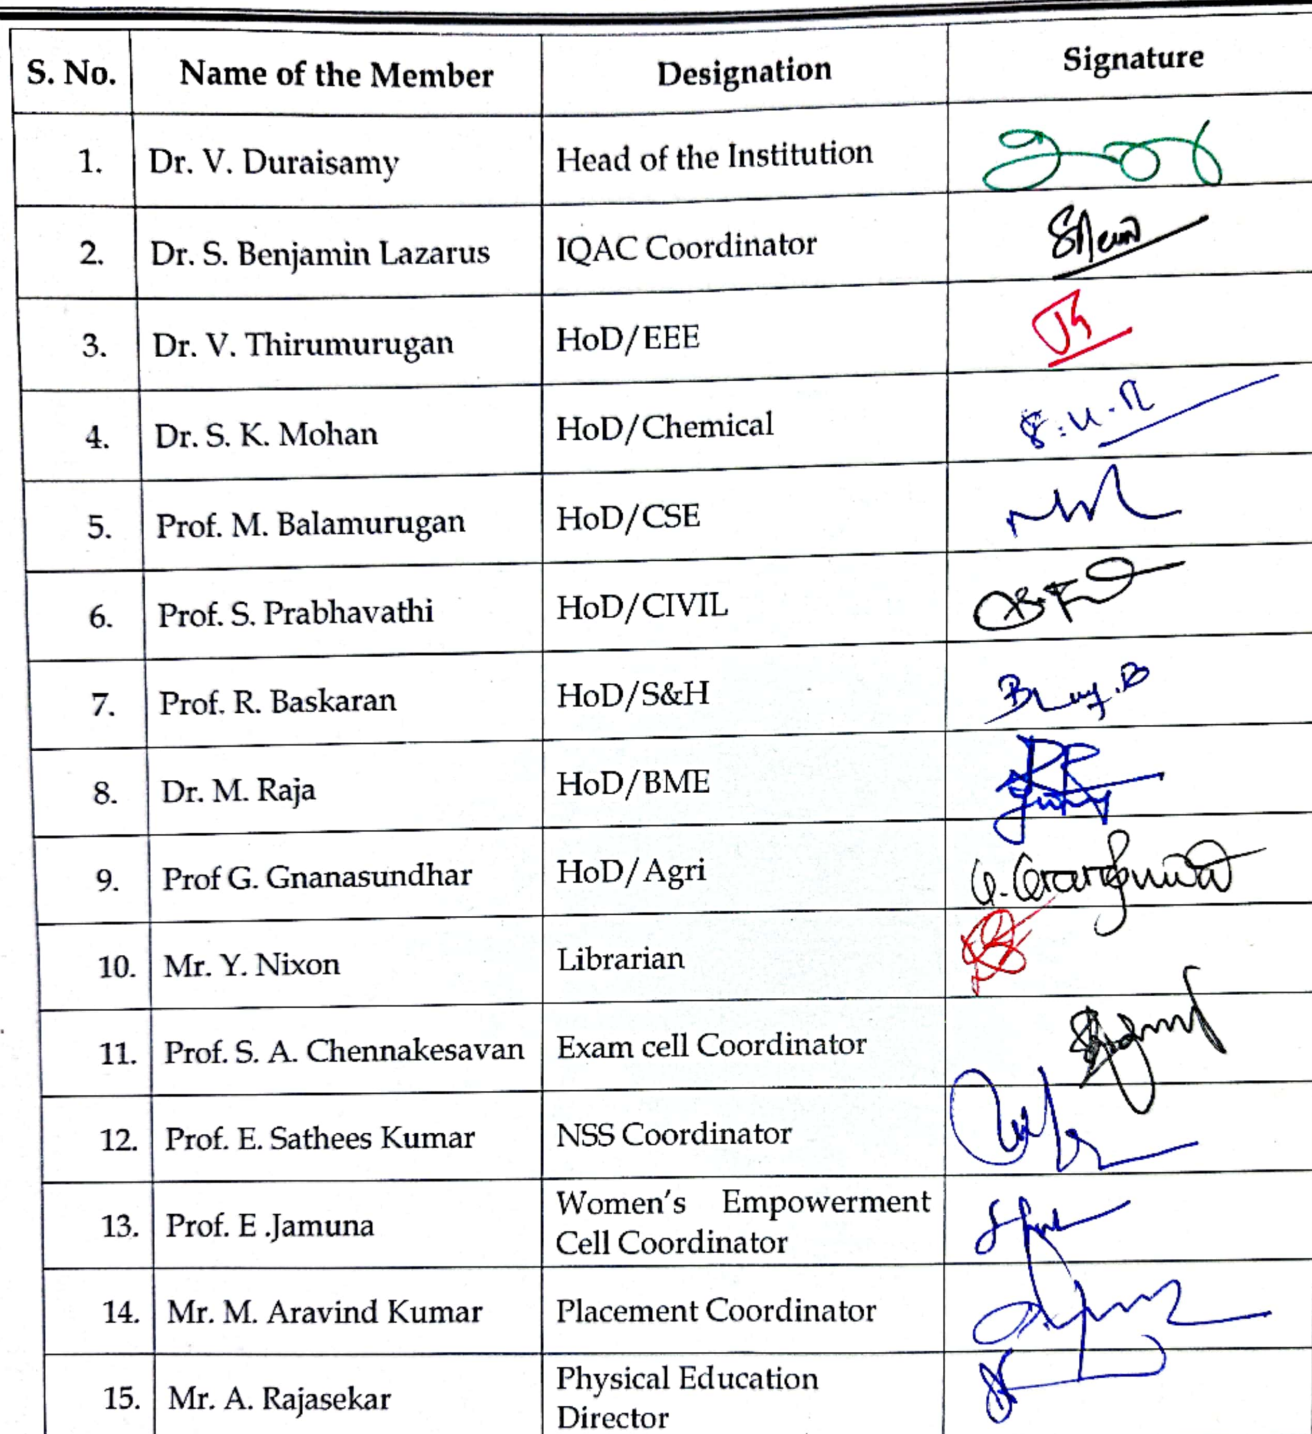 S. No. Name of the Member Designation Signature
1. Dr. V. Duraisamy Head of the Institution
2. Dr. S. Benjamin Lazarus IQAC Coordinator
3. Dr. V. Thirumurugan HoD/EEE
4. Dr. S. K. Mohan HoD/Chemical
5. Prof. M. Balamurugan HoD/CSE
6. Prof. S. Prabhavathi HoD/CIVIL
7. Prof. R. Baskaran HoD/S&H
8. Dr. M. Raja HoD/BME
9. Prof G. Gnanasundhar HoD/Agri
10. Mr. Y. Nixon Librarian
11. Prof. S. A. Chennakesavan Exam cell Coordinator
12. Prof. E. Sathees Kumar NSS Coordinator
13. Prof. E .Jamuna Women's Empowerment
Cell Coordinator
14. Mr. M. Aravind Kumar Placement Coordinator
15. Mr. A. Rajasekar Physical Education
Director